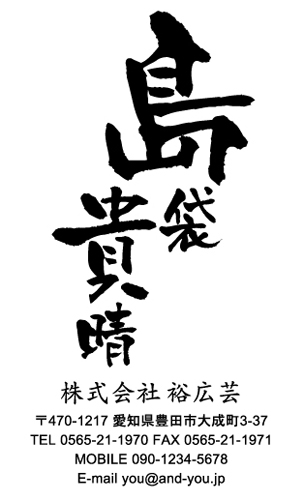 島袋
貴晴
株式会社 裕広芸
〒470-1217 愛知県豊田市大成町3-37
TEL 0565-21-1970 FAX 0565-21-1971
MOBILE 090-1234-5678
E-mail you@and-you.jp